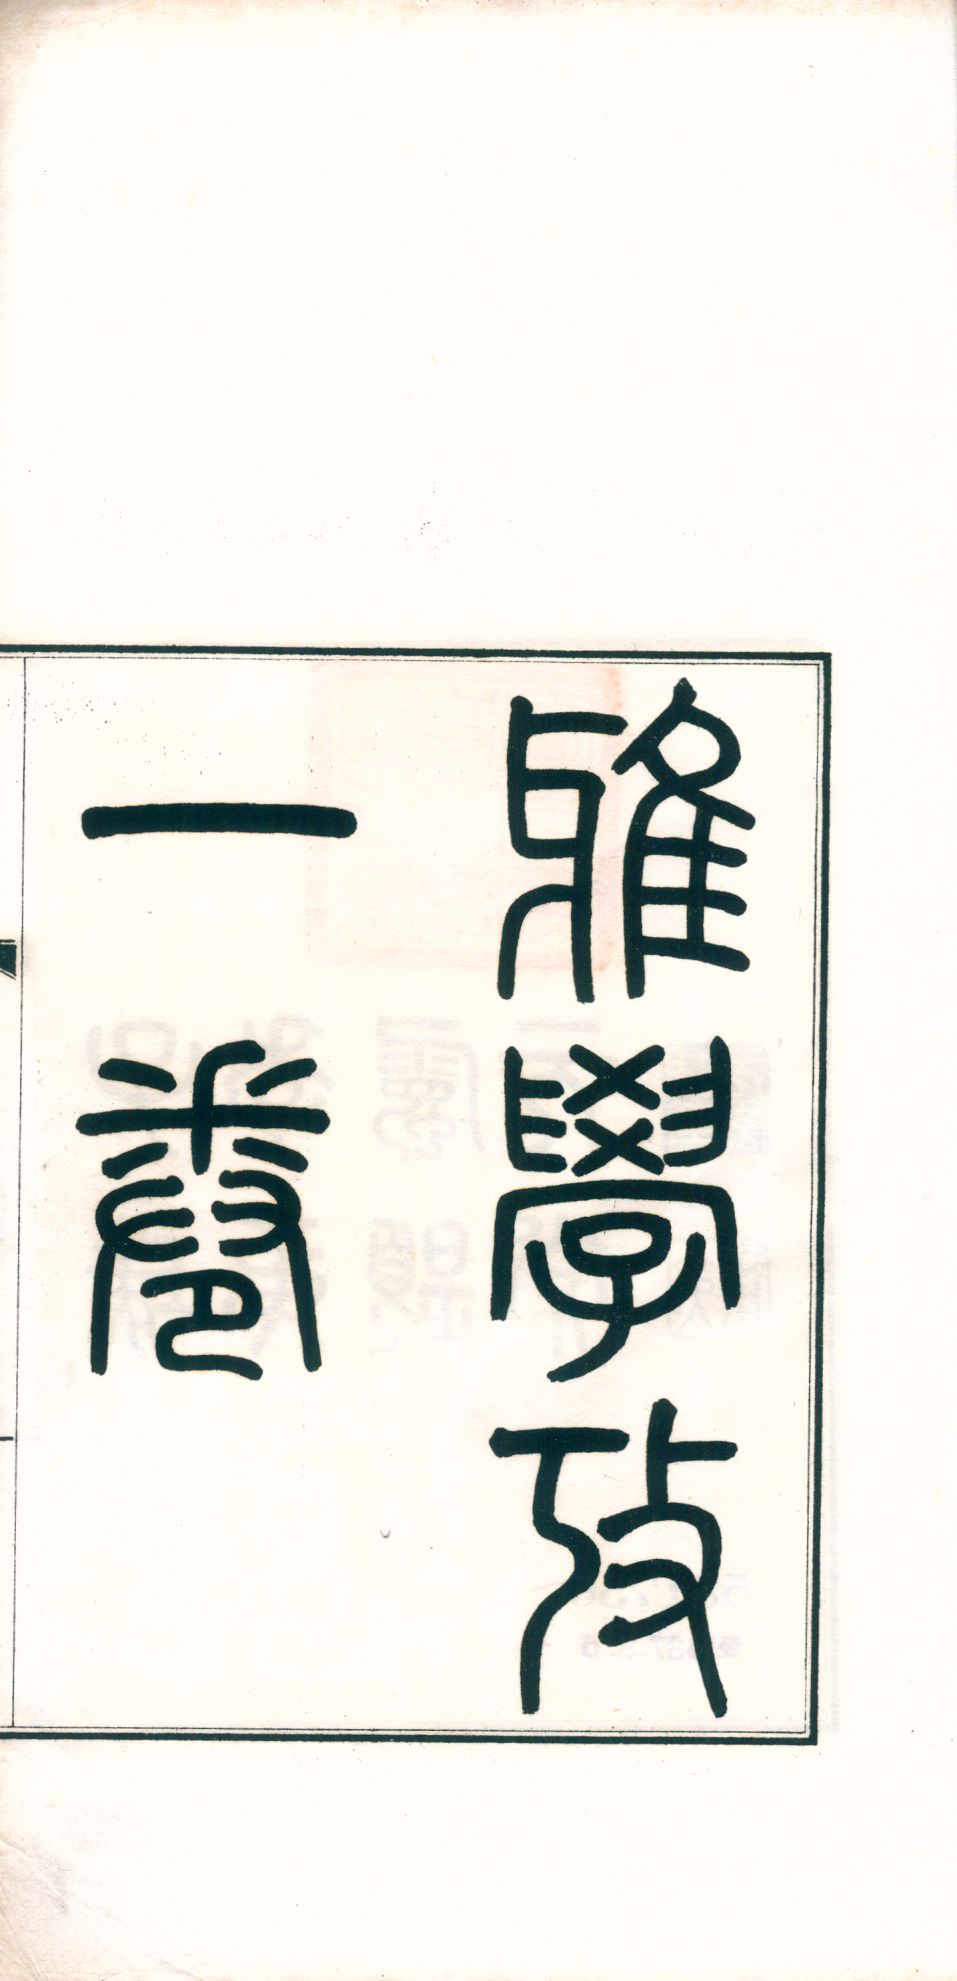 雅學攷
一卷